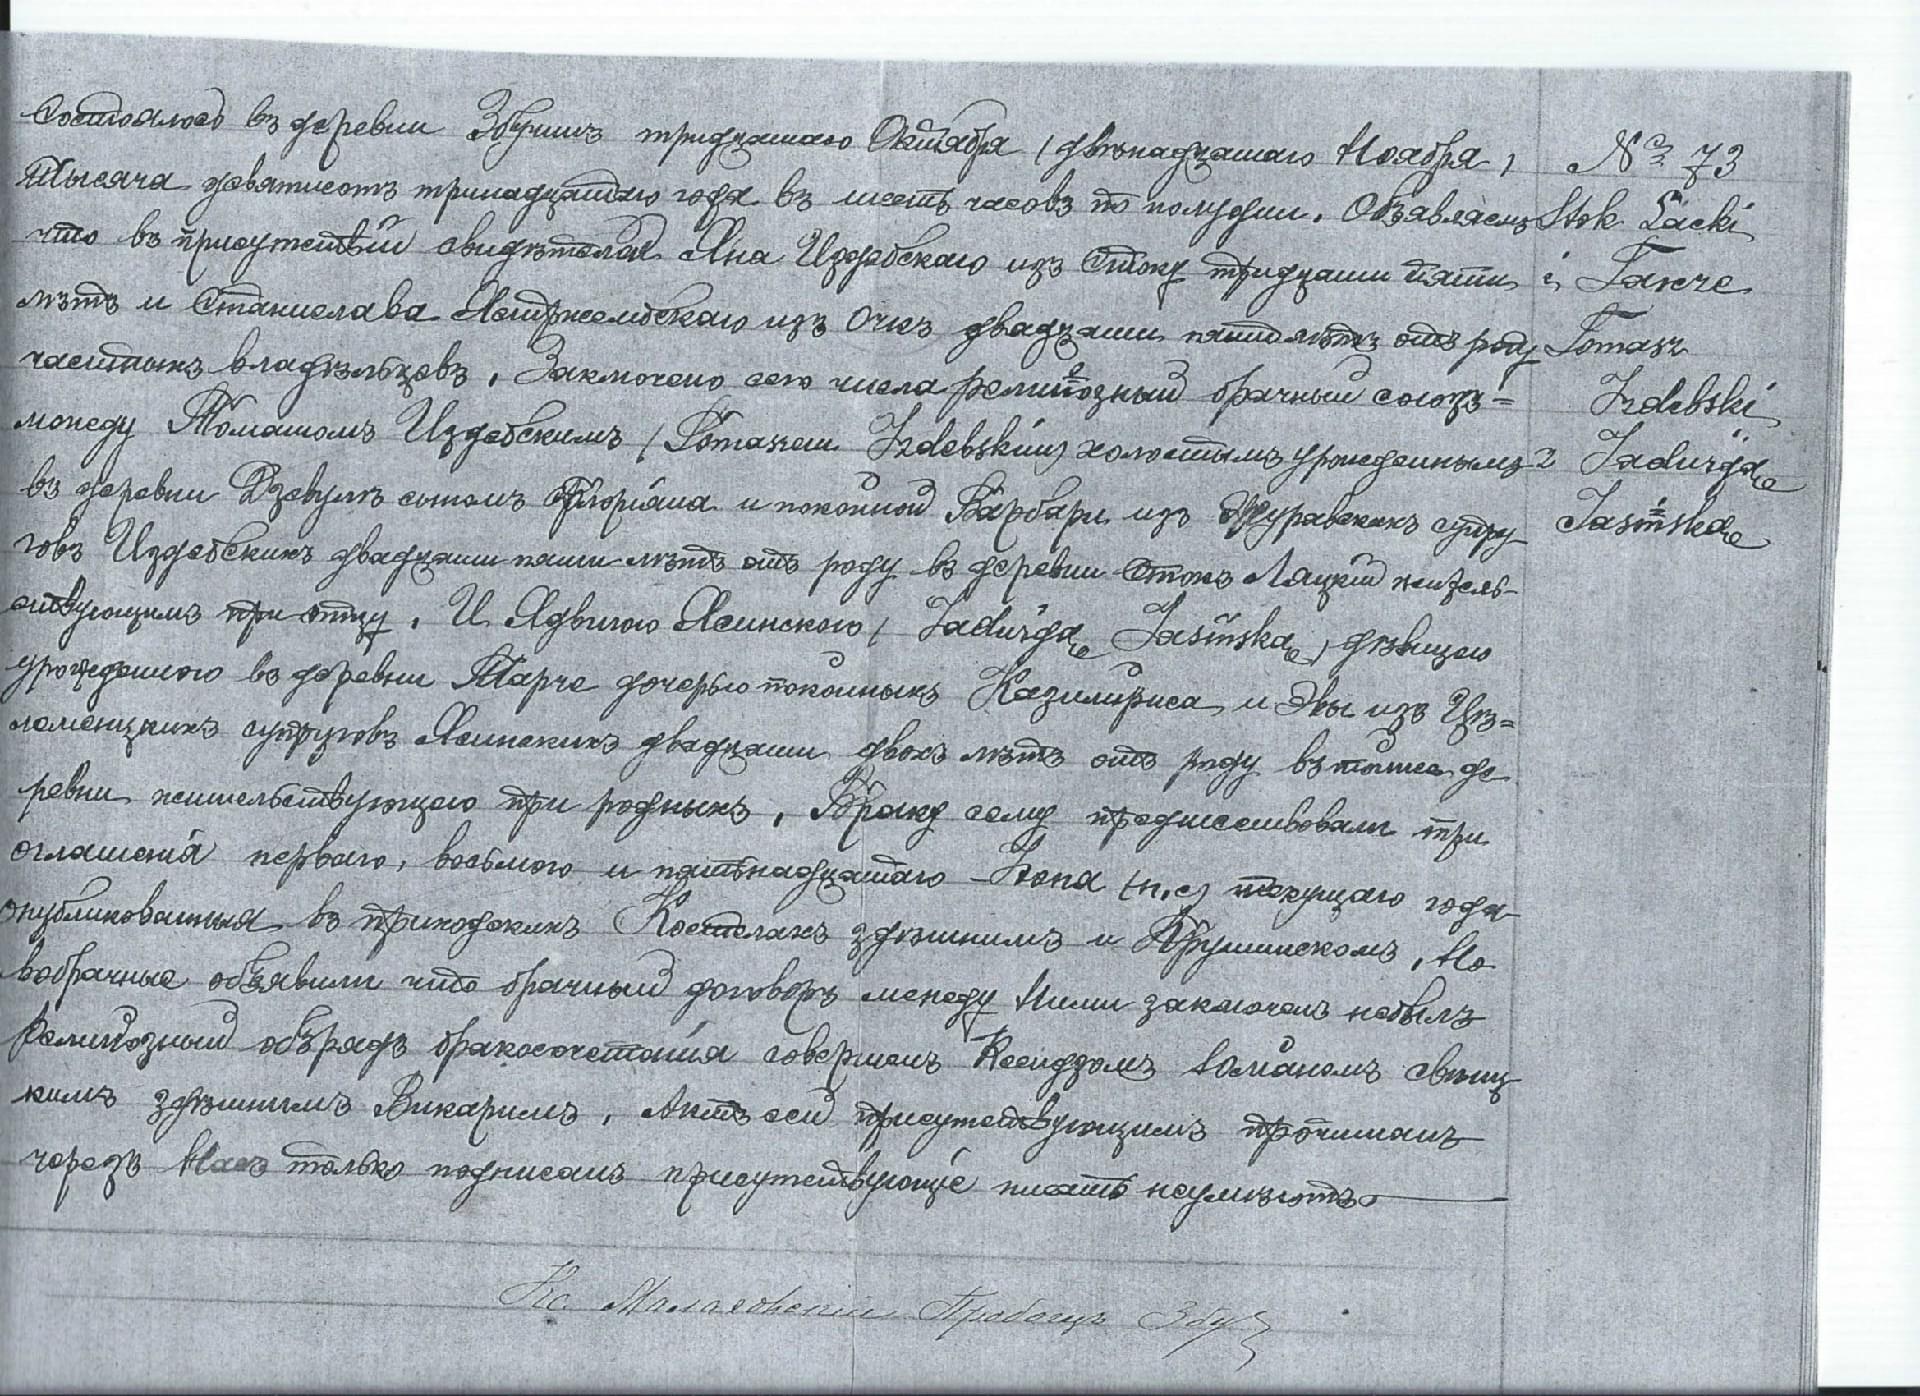 Состоялось въ деревни Збучинѣ тридцатаго Октября / двѣнадцатаго Ноября /
Тысяча девятисотъ тринадцатаго года въ шесть часовъ по полудни. Объявляемъ
что въ присутствіи свидѣтелей Яна Издебскаго изъ Стоку тридцати пяти
лѣтъ и Станислава Ястржембскаго изъ двадцати пяти лѣтъ отъ роду
частныхъ владѣльцевъ. Заключено сего числа религіозный брачный союзъ=
между Томашомъ Издебскимъ / Tomaszem Izdebskim / холостымъ урожденнымъ
въ деревни Дзевулѣ сыномъ Флоріана и покойной Барбары изъ Журавскихъ супру
говъ Издебскихъ двадцати пяти лѣтъ отъ роду въ деревни Стокъ Ляцкій житель-
ствующимъ при отцу. И Ядвигою Ясинскою / Jadwigą Jasińską / дѣвицею
урожденною въ деревни Тарче дочерью покойныхъ Казимириса и Эвы изъ
супруговъ Ясинскихъ двадцати двохъ лѣтъ отъ роду въ тойже де
ревни жительствующею при родныхъ. Браку сему предшествовали три
оглашенія перваго, восьмого и пятьнадцатаго Іюня (н.с) текущаго года
опубликованныя въ приходскихъ Костелахъ здѣшнимъ и Трушинскомъ. Но
вобрачные объявили что брачный договоръ между Ними заключенъ небылъ
Религіозный обърядъ бракосочетанія совершенъ Ксендзомъ
кимъ здѣшнимъ Викаримъ. Актъ сей присутствующимъ прочитанъ
черезъ Насъ только подписанъ присутствующіе писать неумѣютъ
Кс. Пробощъ Збу
№ 73
Stok Lacki
i Tarcze
Tomasz
Izdebski
z Jadwigą
Jasińską